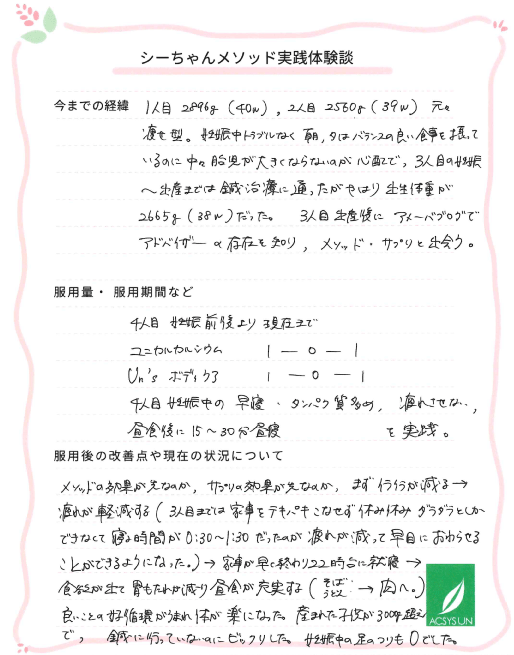 シーちゃんメソッド実践体験談
今までの経緯 1人目 2896g (40w), 2人目 2560g (39w) 元々
痩せ型。妊娠中トラブルなく 朝,夕はバランスの良い食事を摂って
いるのに中々胎児が大きくならないのが心配で, 3人目の妊娠
〜出産までは鍼治療に通ったがやはり出生体重が
2665g (38w)だった。 3人目出産後に アメーバブログで
アドバイザーの存在を知り, メソッド・サプリと出会う。
服用量・ 服用期間など
4人目 妊娠前後より 現在まで
ユニカルカルシウム 1 — 0 — 1
Un's ボディケア 1 — 0 — 1
4人目妊娠中の 早寝・タンパク質多め, 疲れさせない,
昼食後に15〜30分昼寝 を実践。
服用後の改善点や現在の状況について
メソッドの効果が先なのか, サプリの効果が先なのか, まずイライラが減る→
疲れが軽減する(3人目までは家事をテキパキこなせず休み休みダラダラとしか
できなくて寝る時間が0:30〜1:30だったが疲れが減って早目におわらせる
ことができるようになった。)→ 家事が早く終わり22時台に就寝 →
食欲が出て胃もたれが減り昼食が充実する(そば・うどん → 肉へ。)
良いことの好循環がうまれ体が楽になった。産まれた子供が3004g超え
で, 鍼に行っていないのにビックリした。妊娠中の足のつりも0でした。
ACSYSUN